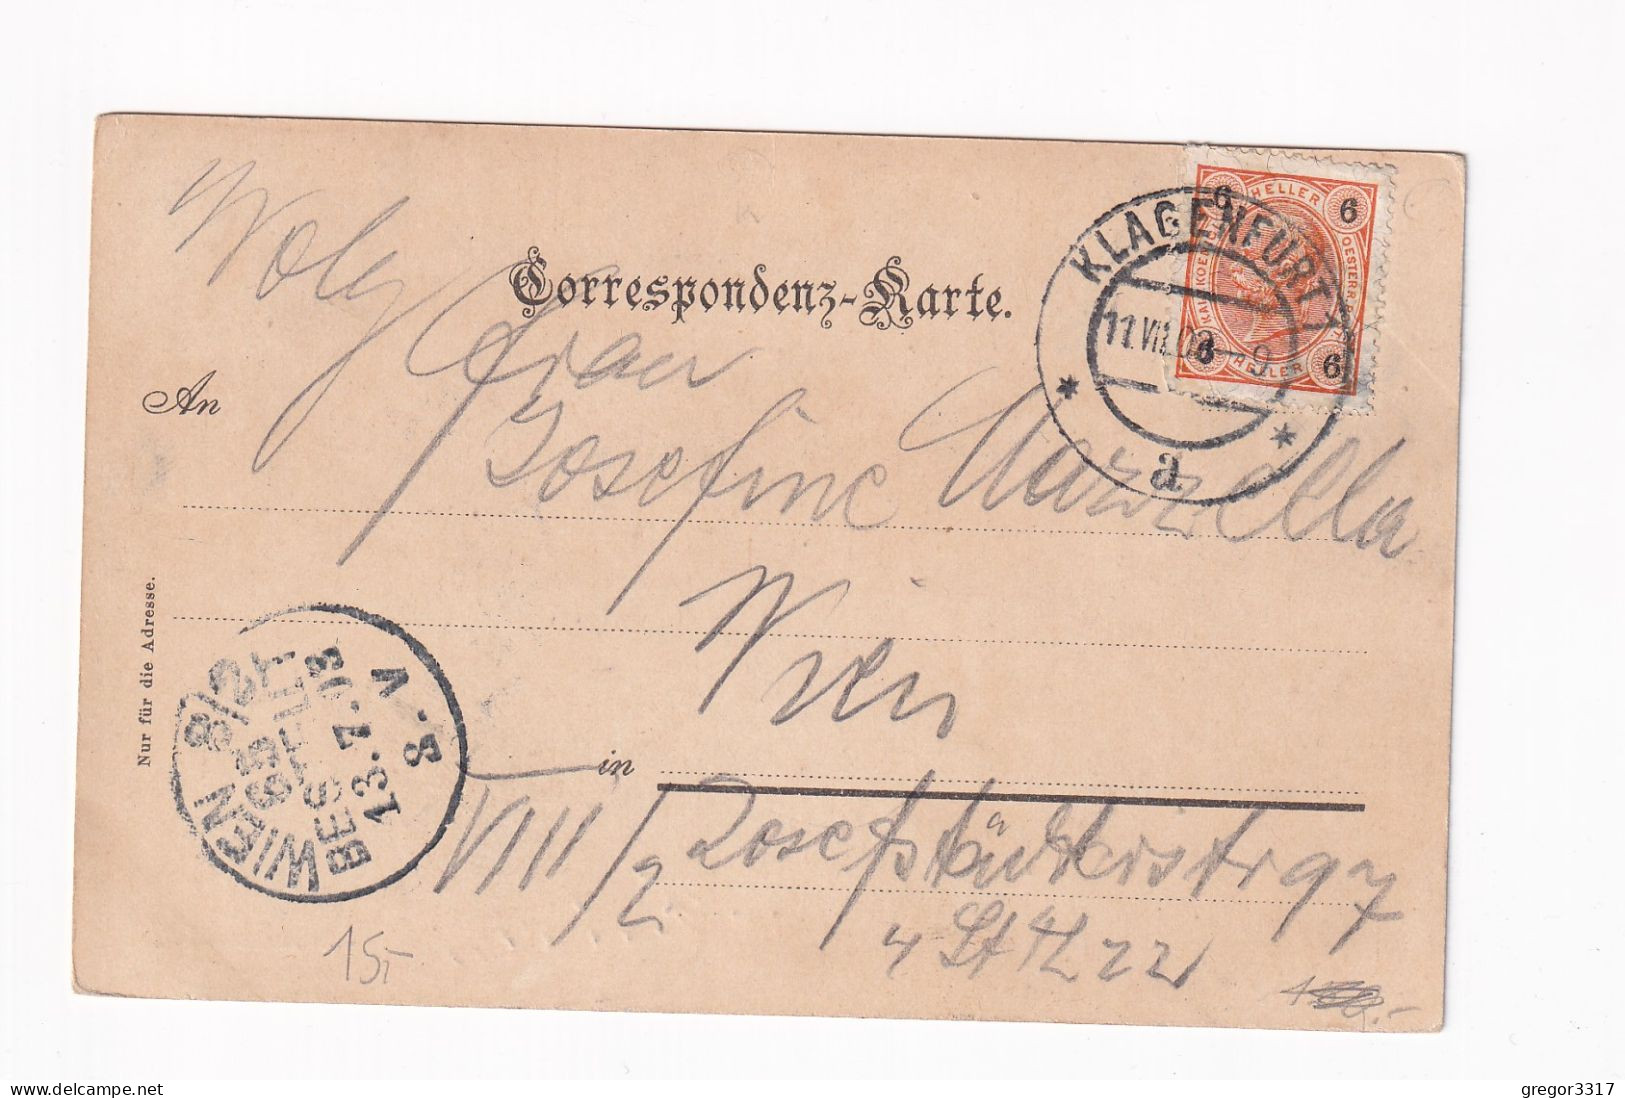 Correspondenz-Karte.
Wolg Frau
An
Josefine Marzella
Wien
in
VIII/2 Josefstädterstr 97
4 St Th 22
Nur für die Adresse.
KLAGENFURT 1
11.VII.03
a
6 HELLER 6
6 HELLER 6
WIEN 8/2
63
BESTELLT
13.7.03
8.V
15,-
gregor3317